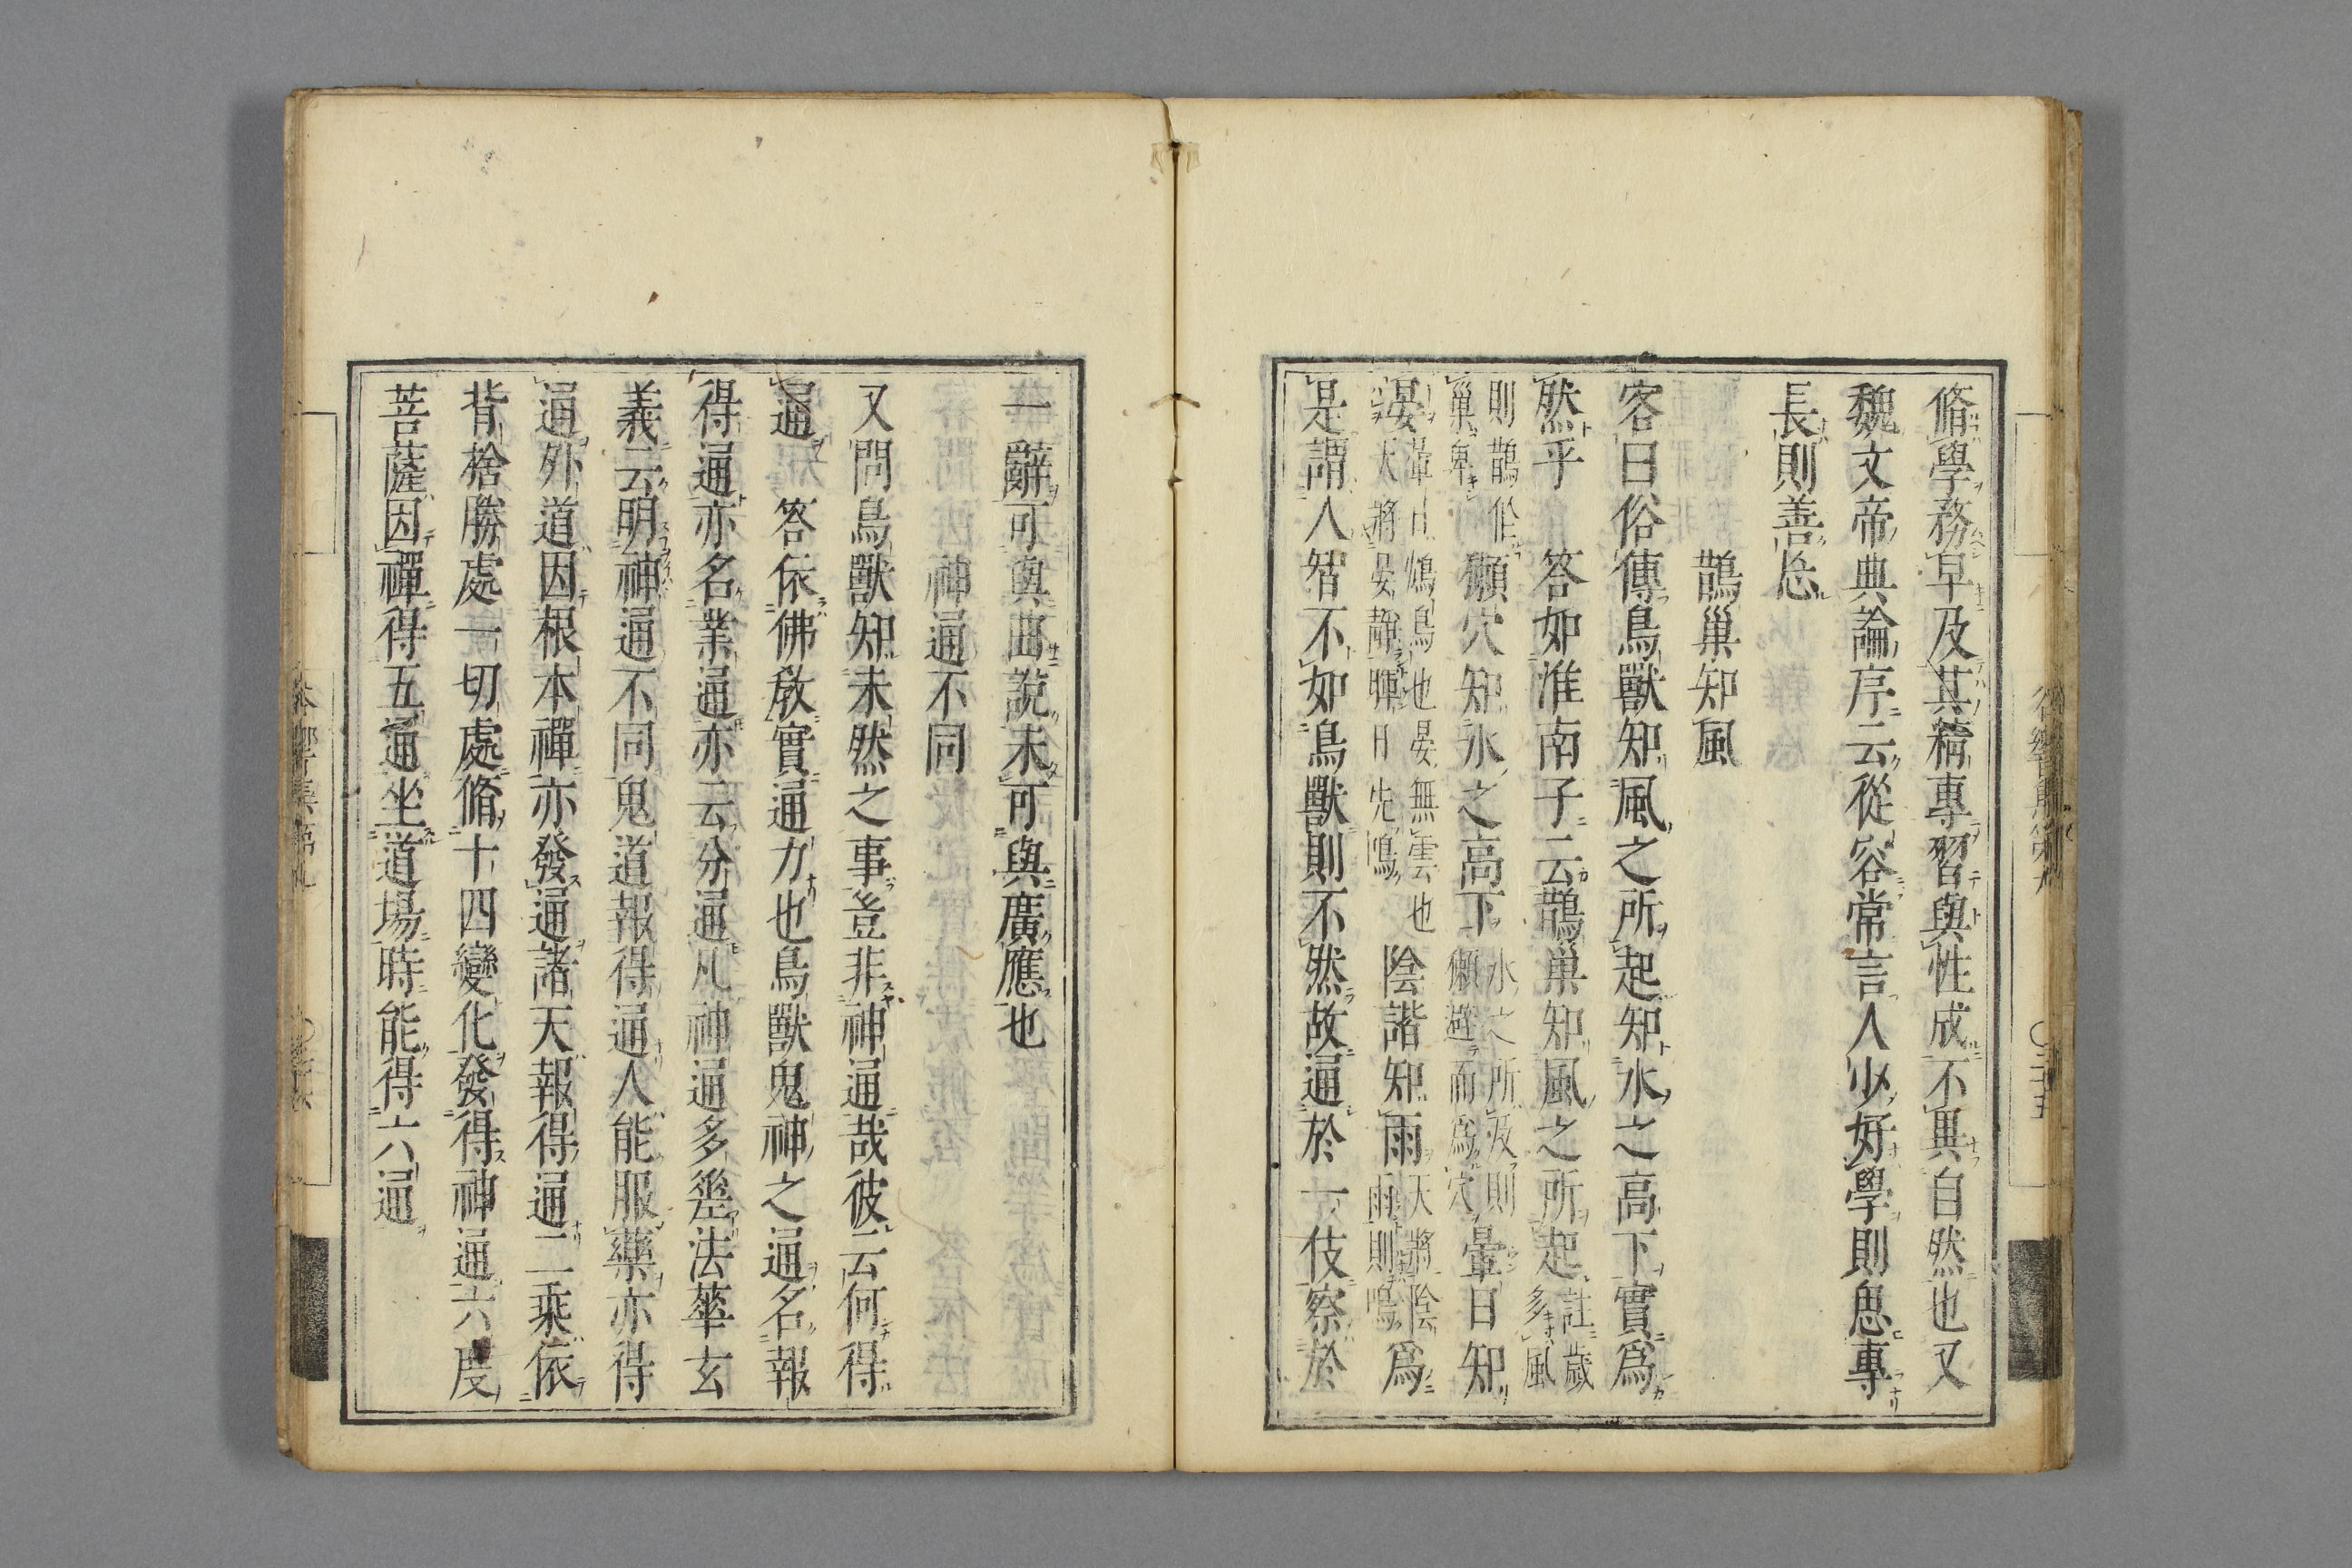 脩學務早及其精專習與性成不異自然也又
魏文帝典論序云從容常言人少好學則思專
長則善忘
鵲巢知風
客曰俗傳鳥獸知風之所起知水之高下實爲
然乎　答如淮南子云鵲巢知風之所起註歲多風
則鵲作巢卑　獺穴知水之高下水之所及則獺避而爲穴　暈日知
晏暈日鴆鳥也晏無雲也天將晏靜暉日先鳴　陰諧知雨天將陰雨則鳴　爲
是謂人智不如鳥獸則不然故通於一伎察於
一辭可與曲說未可與廣應也
神通不同
又問鳥獸知未然之事豈非神通哉彼云何得
通　答依佛教實通力也鳥獸鬼神之通名報
得通亦名業通亦云分通凡神通多種法華玄
義云明神通不同鬼道報得通人能服藥亦得
通外道因根本禪亦發通諸天報得通二乘依
背捨勝處一切處脩十四變化發得神通六度
菩薩因禪得五通坐道場時能得六通